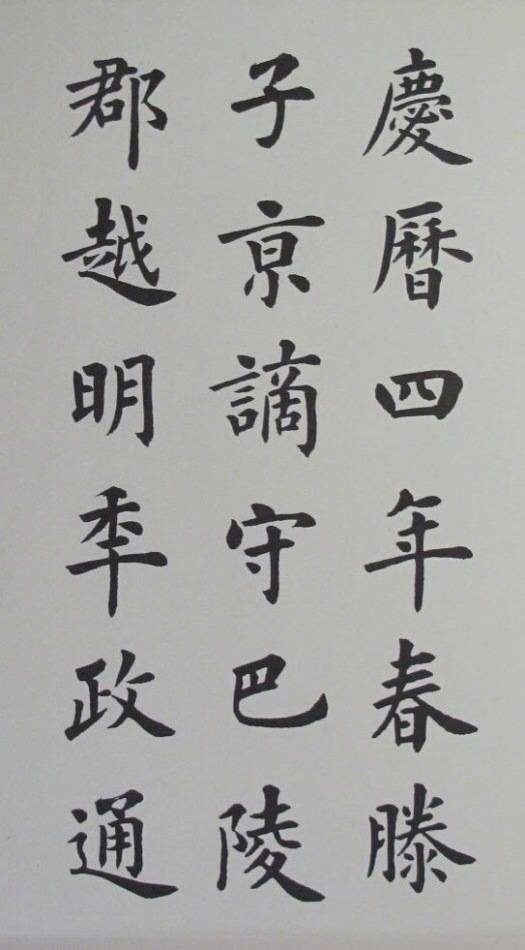 慶曆四年春滕
子亰謫守巴陵
郡越明秊政通